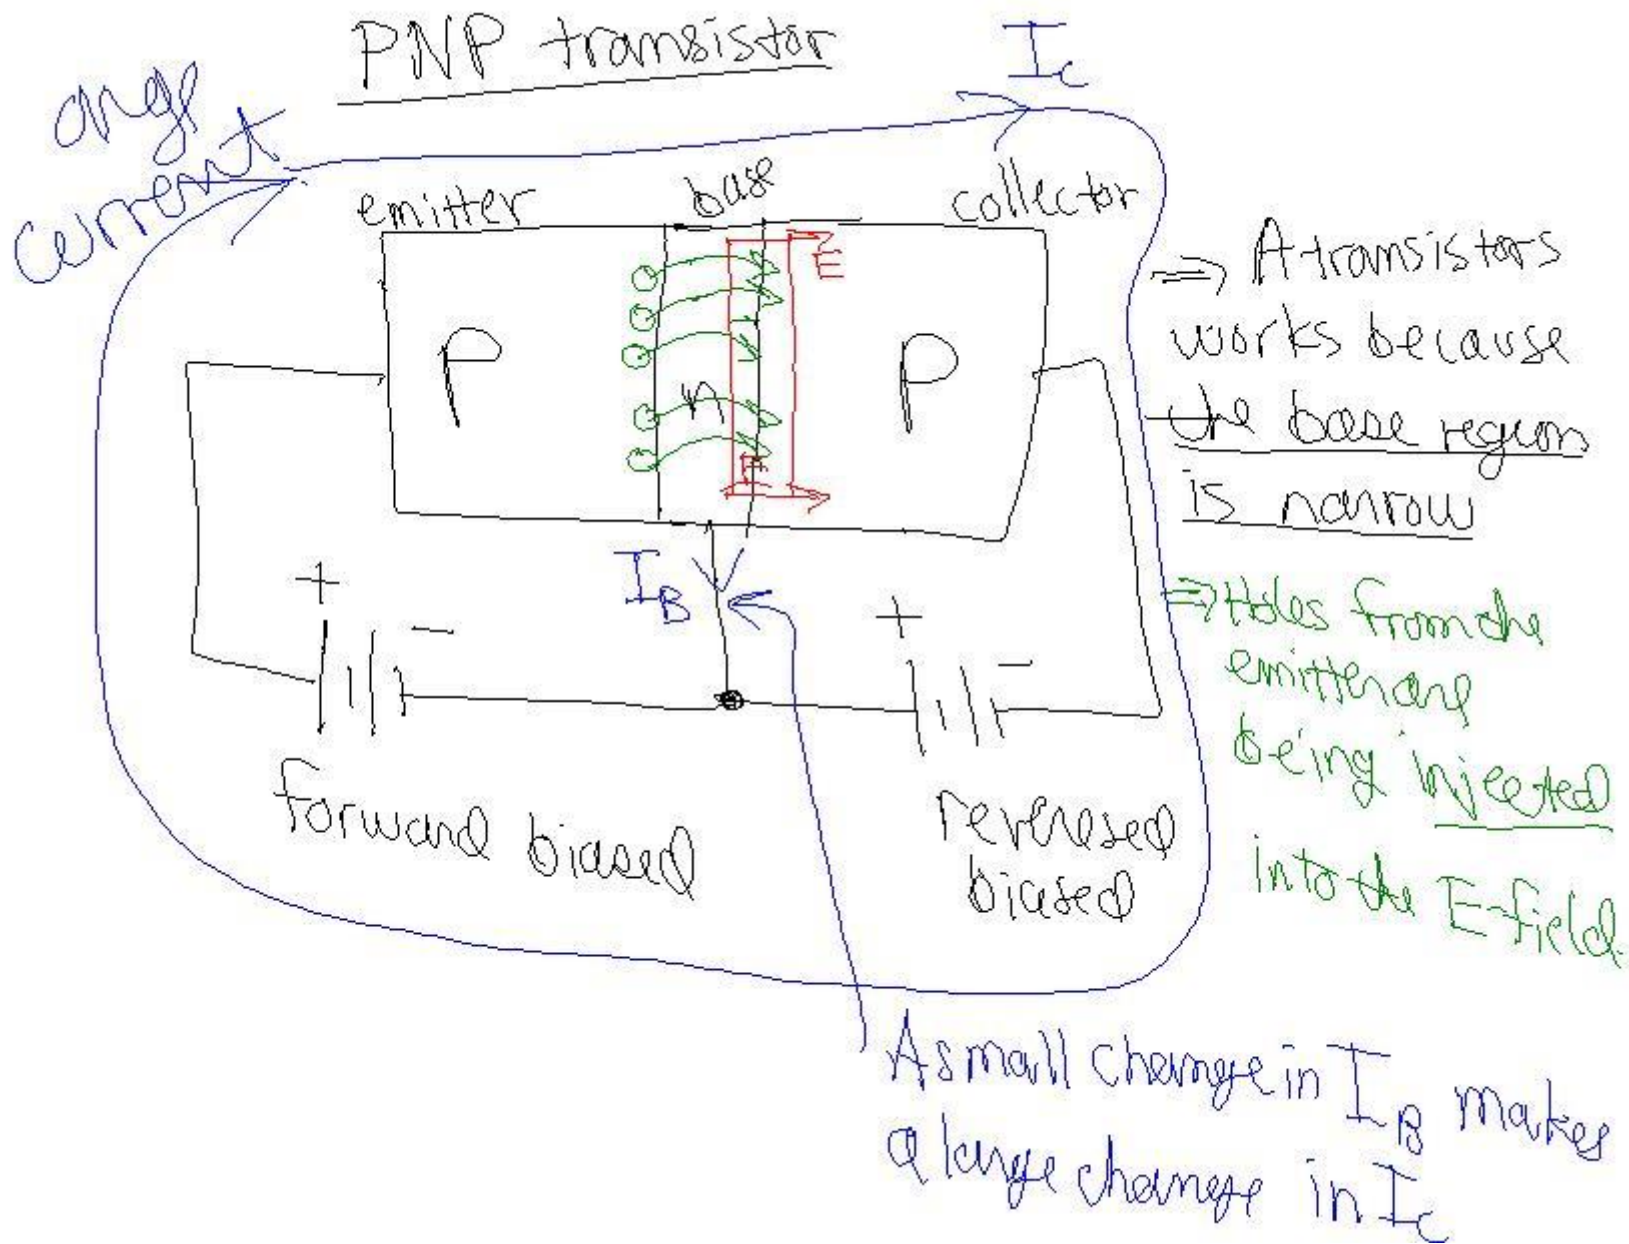 PNP transistor
I_C
arge
current
emitter
base
collector
E
P
n
P
E
I_B
+
-
+
-
forward biased
reversed
biased
⇒ A transistors
works because
the base region
is narrow
⇒ Holes from the
emitter are
being injected
into the E-field
A small change in I_B makes
a large change in I_C